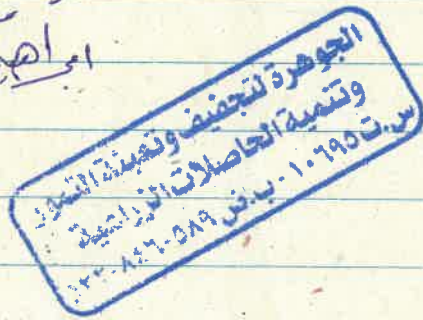 الجوهرة لتجفيف وتعبئة التمور
وتنمية الحاصلات الزراعية
س.ت ١٠٦٩٥ - ب.ض ٥٨٩-٨٤٦-